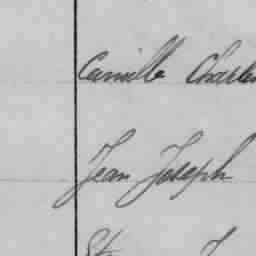 Camille Charles
Jean Joseph